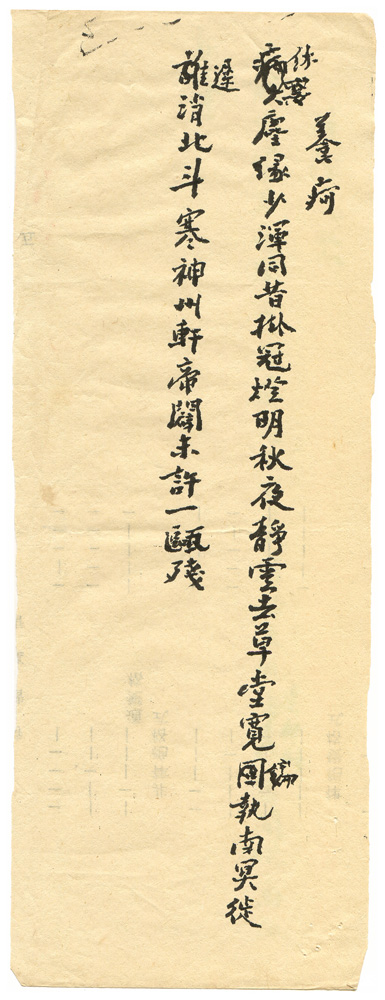 養疴
病久塵緣少渾同昔掛冠燈明秋夜靜雲去草堂寬圖執南冥徙
休
誰消北斗寒神州軒帝闢未許一甌殘
遲